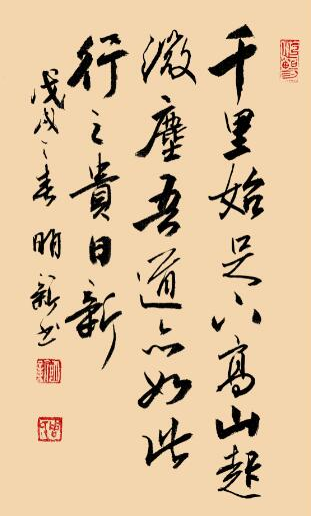 千里始足下高山起
微塵吾道亦如此
行之貴日新
戊戌之春明新书